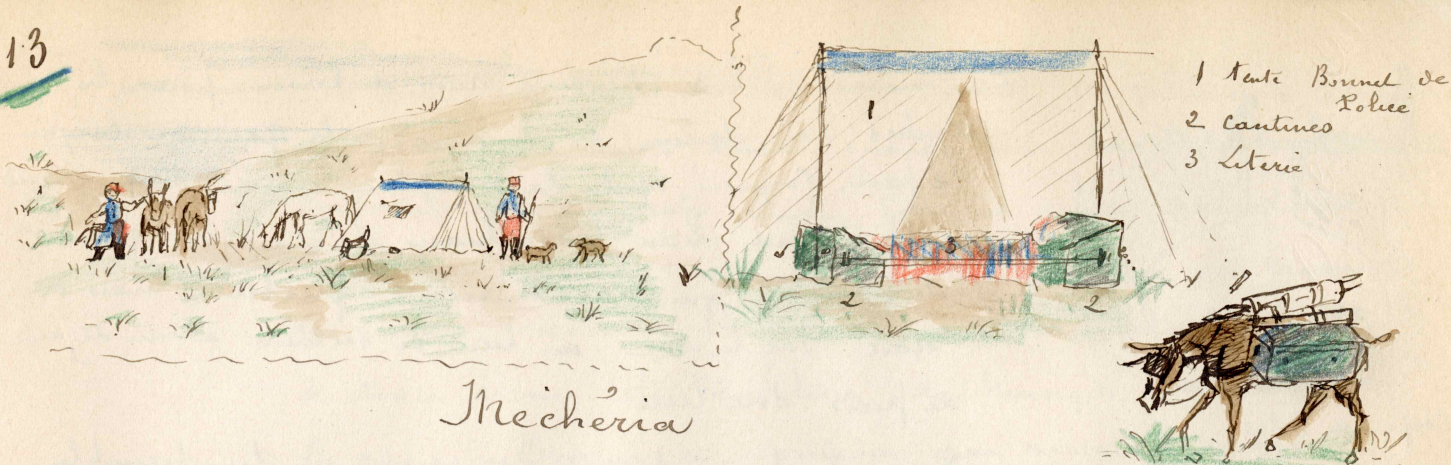 13
1
1 tente Bonnet de
Police
2 cantines
3 Literie
3
2
2
Mechéria